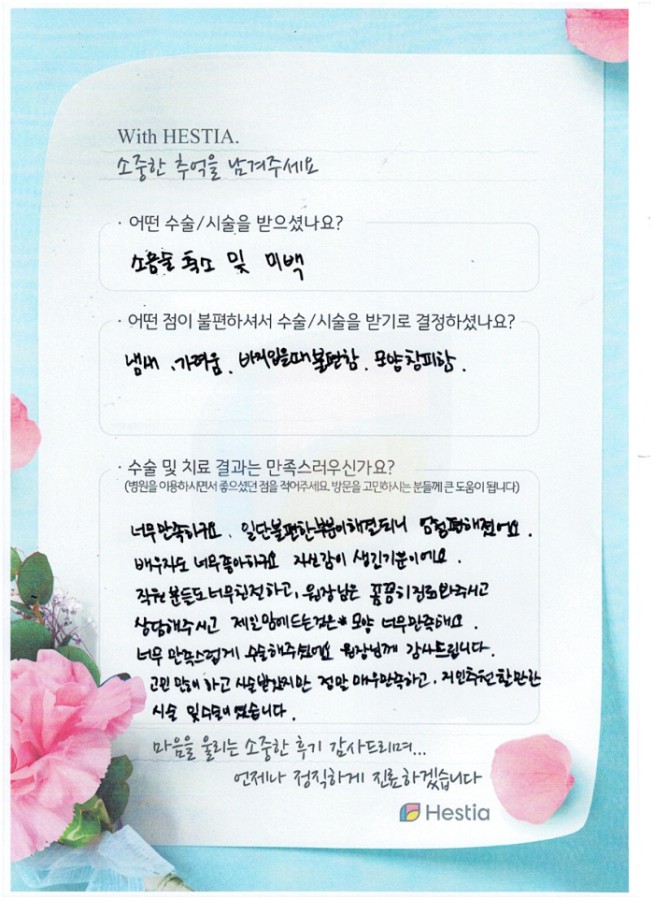 With HESTIA.
소중한 추억을 남겨주세요
· 어떤 수술/시술을 받으셨나요?
소음술 축소 및 미백
· 어떤 점이 불편하셔서 수술/시술을 받기로 결정하셨나요?
냄새, 가려움. 바지입을때불편함. 모양창피함.
· 수술 및 치료 결과는 만족스러우신가요?
(병원을 이용하시면서 좋으셨던 점을 적어주세요. 방문을 고민하시는 분들께 큰 도움이 됩니다)
너무만족하구요. 일단불편한부분이해결되니 엄청편해졌어요.
배우자도 너무좋아하구요 자신감이 생긴기분이에요.
직원분들도너무친절하고, 원장님은 꼼꼼히검토와주시고
상담해주시고 제일맘에드는것은 모양 너무만족해요.
너무 만족스럽게 수술해주셨어요 원장님께 감사드립니다.
고민 많이 하고 시술받았지만 정말 매우만족하고. 지인추천할만한
시술 및수술이였습니다.
마음을 울리는 소중한 후기 감사드리며...
언제나 정직하게 진료하겠습니다
Hestia